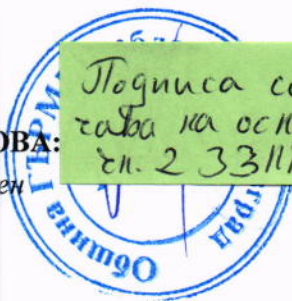 Подписа се
чава на осн
чл. 2 ЗЗЛ
ОВА:
ен
Община ГЪРМ
град